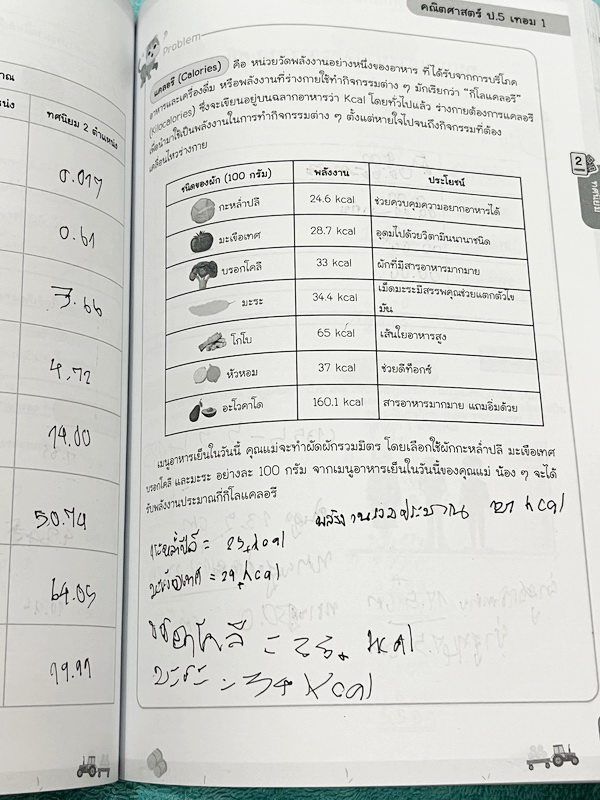 คณิตศาสตร์ ป.5 เทอม 1
Problem
แคลอรี (Calories) คือ หน่วยวัดพลังงานอย่างหนึ่งของอาหาร ที่ได้รับจากการบริโภค
อาหารและเครื่องดื่ม หรือพลังงานที่ร่างกายใช้ทำกิจกรรมต่าง ๆ มักเรียกว่า "กิโลแคลอรี"
(Kilocalories) ซึ่งจะเขียนอยู่บนฉลากอาหารว่า Kcal โดยทั่วไปแล้ว ร่างกายต้องการแคลอรี
เพื่อนำมาใช้เป็นพลังงานในการทำกิจกรรมต่าง ๆ ตั้งแต่หายใจไปจนถึงกิจกรรมที่ต้อง
เคลื่อนไหวร่างกาย
2
ทศนิยม
ชนิดของผัก (100 กรัม) พลังงาน ประโยชน์
กะหล่ำปลี 24.6 kcal ช่วยควบคุมความอยากอาหารได้
มะเขือเทศ 28.7 kcal อุดมไปด้วยวิตามินนานาชนิด
บรอกโคลี 33 kcal ผักที่มีสารอาหารมากมาย
มะระ 34.4 kcal เม็ดมะระมีสรรพคุณช่วยแตกตัวไข
มัน
โกโบ 65 kcal เส้นใยอาหารสูง
หัวหอม 37 kcal ช่วยดีท็อกซ์
อะโวคาโด 160.1 kcal สารอาหารมากมาย แถมอิ่มด้วย
เมนูอาหารเย็นในวันนี้ คุณแม่จะทำผัดผักรวมมิตร โดยเลือกใช้ผักกะหล่ำปลี มะเขือเทศ
บรอกโคลี และมะระ อย่างละ 100 กรัม จากเมนูอาหารเย็นในวันนี้ของคุณแม่ น้อง ๆ จะได้
รับพลังงานประมาณกี่กิโลแคลอรี
พลังงานรวมประมาณ kcal
กะหล่ำปลี = 25 kcal
มะเขือเทศ = 29 kcal
= 33 kcal
มะระ = 34 kcal
ทศนิยม 2 ตำแหน่ง
0.017
0.61
3.66
4.72
14.00
50.74
64.05
79.97